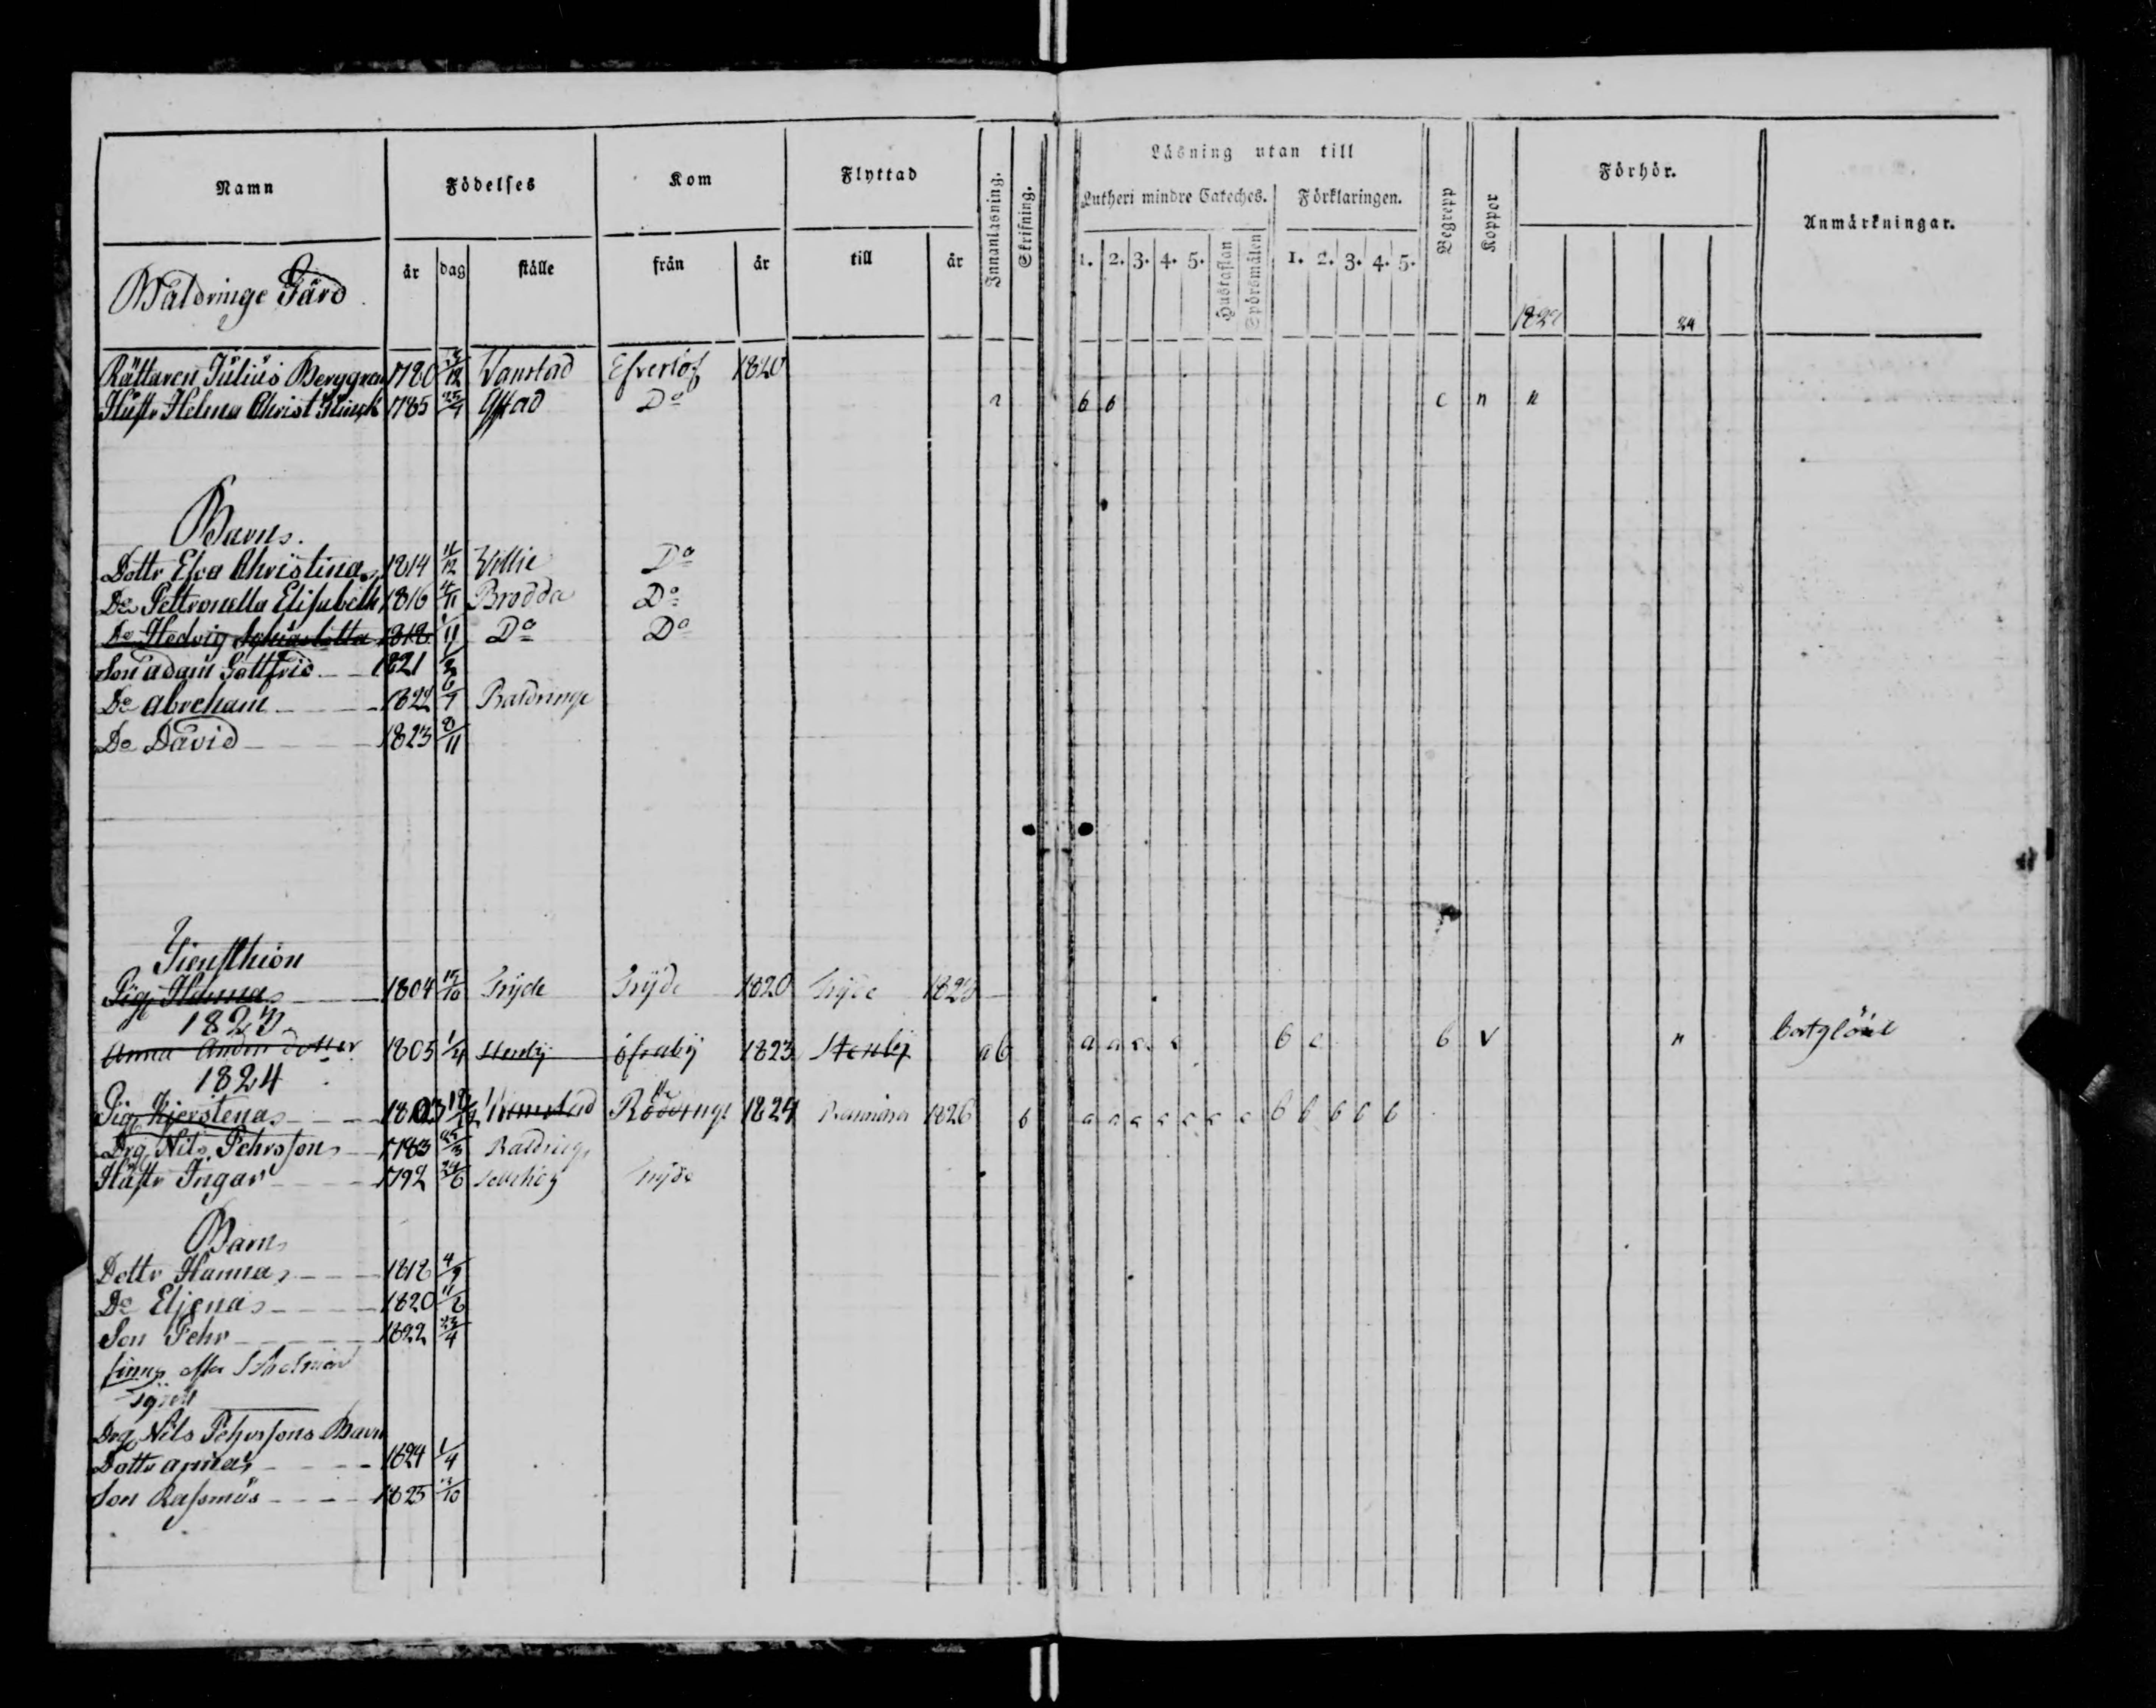 Namn Födelses Kom Flyttad Innanläsning. Skrifning. Läsning utan till Begrepp Koppor Förhör. Anmärkningar.
Lutheri mindre Cateches. Förklaringen.
år dag ställe från år till år 1. 2. 3. 4. 5. Hustaflan Spörsmålen 1. 2. 3. 4. 5.
Baldringe Gård 1822 24
Rättaren Julius Berggren 1780 /12 Wanstad Efverlöf 1820
Hustr Helena Christ 1785 25/4 Ystad Do a b b c n n
Barn.
Dottr Efva Christina 1814 11/12 Willie Do
Do Pettronella Elisabeth 1816 4/11 Brodda Do
Do Hedvig 1818 1/11 Do Do
Son Adam Gottfrid 1821 /3
Do Abreham 1822 6/7 Baldringe
Do David 1823 8/11
Tiensthion
Pig Hanna 1804 15/10 Tryde Tryde 1820 Tryde 1823
1823
Anna Anders dotter 1805 1/4 Stenby Öfraby 1823 Stenby a b a a c c c b c b v n
1824
Pig Kjerstena 1803 Wanstad Röddinge 1824 1826 b a a a a a a a b b b b b
Drg Nils Pehrsson 1783 25/3 Baldringe
Hustr Ingar 1792 24/6 Tryde
Barn
Dottr Hanna 1818 4/9
Do Eljena 1820 11/6
Son Pehr 1822 23/4
finns efter
Drg Nils Pehrssons Barn
Dottr Anna 1824 1/4
Son Rasmus 1825 /10